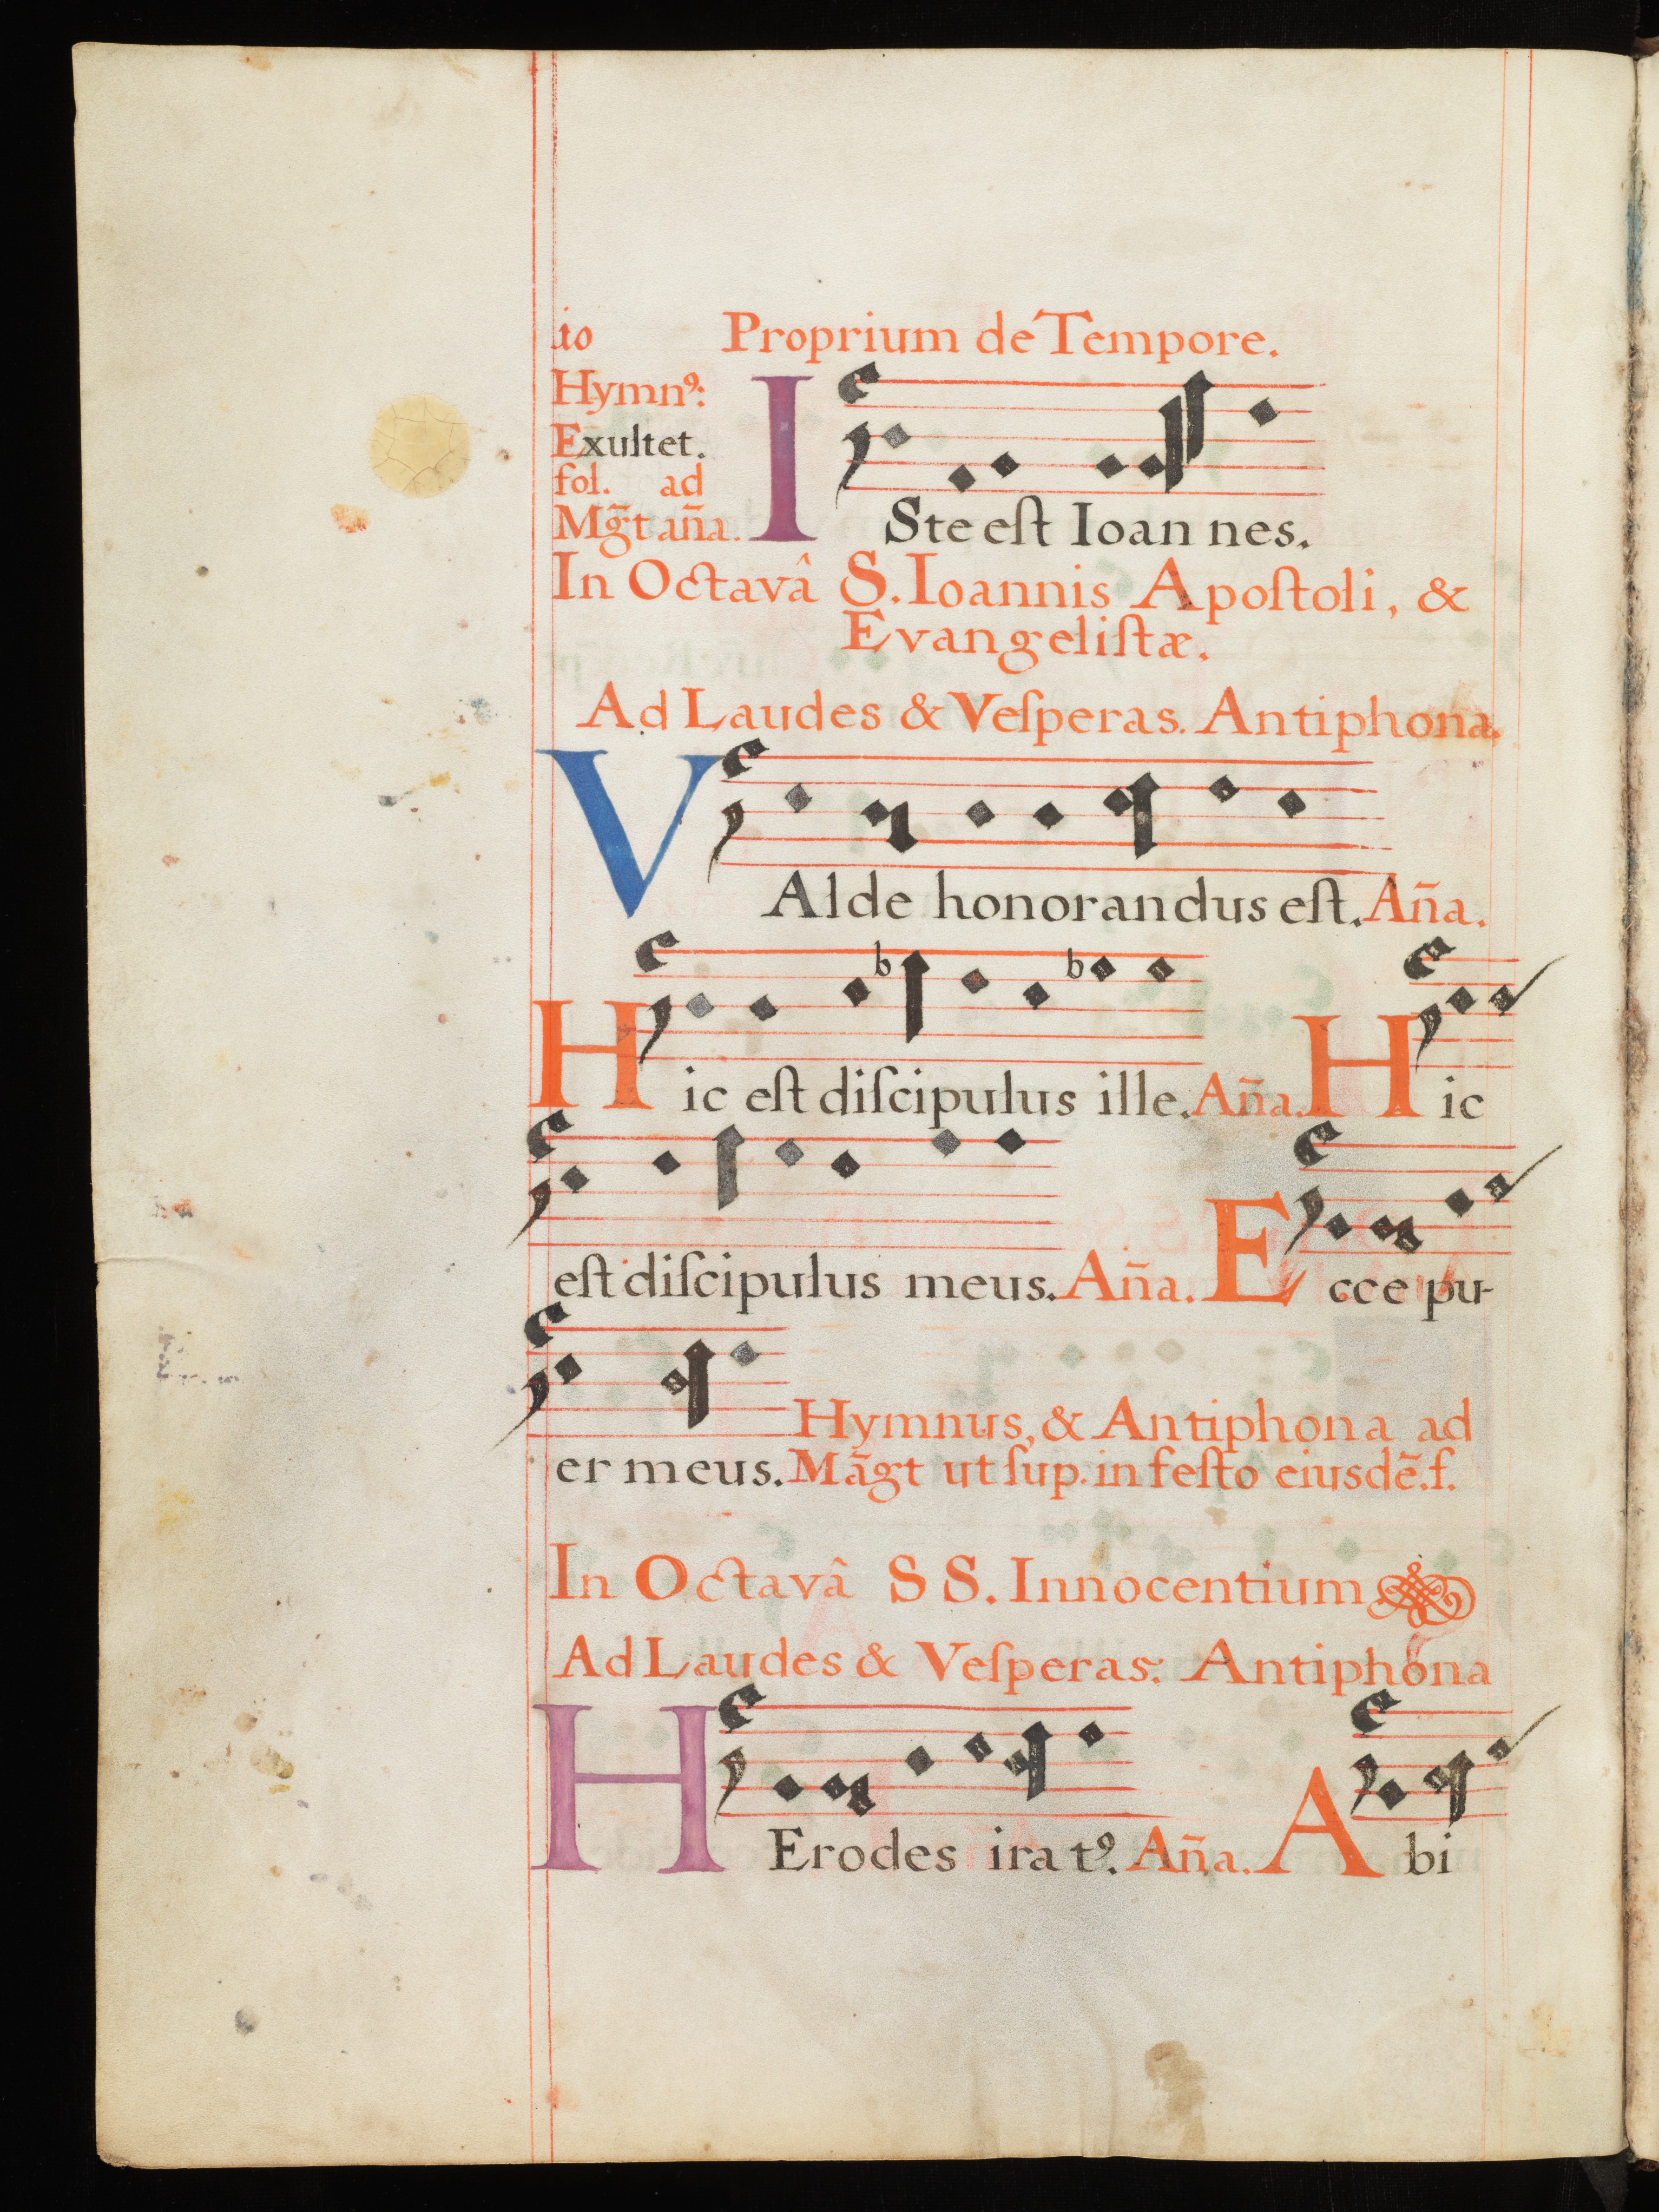 10 Proprium de Tempore.
Hymnꝰ:
Exultet.
fol. ad
Mg̃t aña.
ISte eſt Ioannes.
In Octavâ S. Ioannis Apoſtoli, &
Evangeliſtæ.
Ad Laudes & Veſperas. Antiphona.
VAlde honorandus eſt. Aña.
Hic eſt diſcipulus ille. Aña. Hic
eſt diſcipulus meus. Aña. Ecce pu-
Hymnus, & Antiphona ad
er meus. Mãgt ut ſup. in feſto eiusdẽ. f.
In Octavâ SS. Innocentium
Ad Laudes & Veſperas: Antiphona
HErodes iratꝰ. Aña. Abi